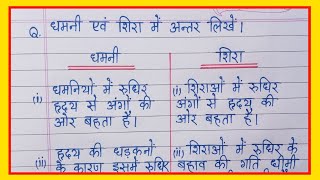 Q. धमनी एवं शिरा में अन्तर लिखें।
धमनी शिरा
(i) धमनियों में रुधिर (i) शिराओं में रुधिर
हृदय से अंगों की अंगों से हृदय की
ओर बहता है। ओर बहता है।
(ii) हृदय की धड़कनों (ii) शिराओं में रुधिर के
के कारण इसमें रुधिर बहाव की गति धीमी